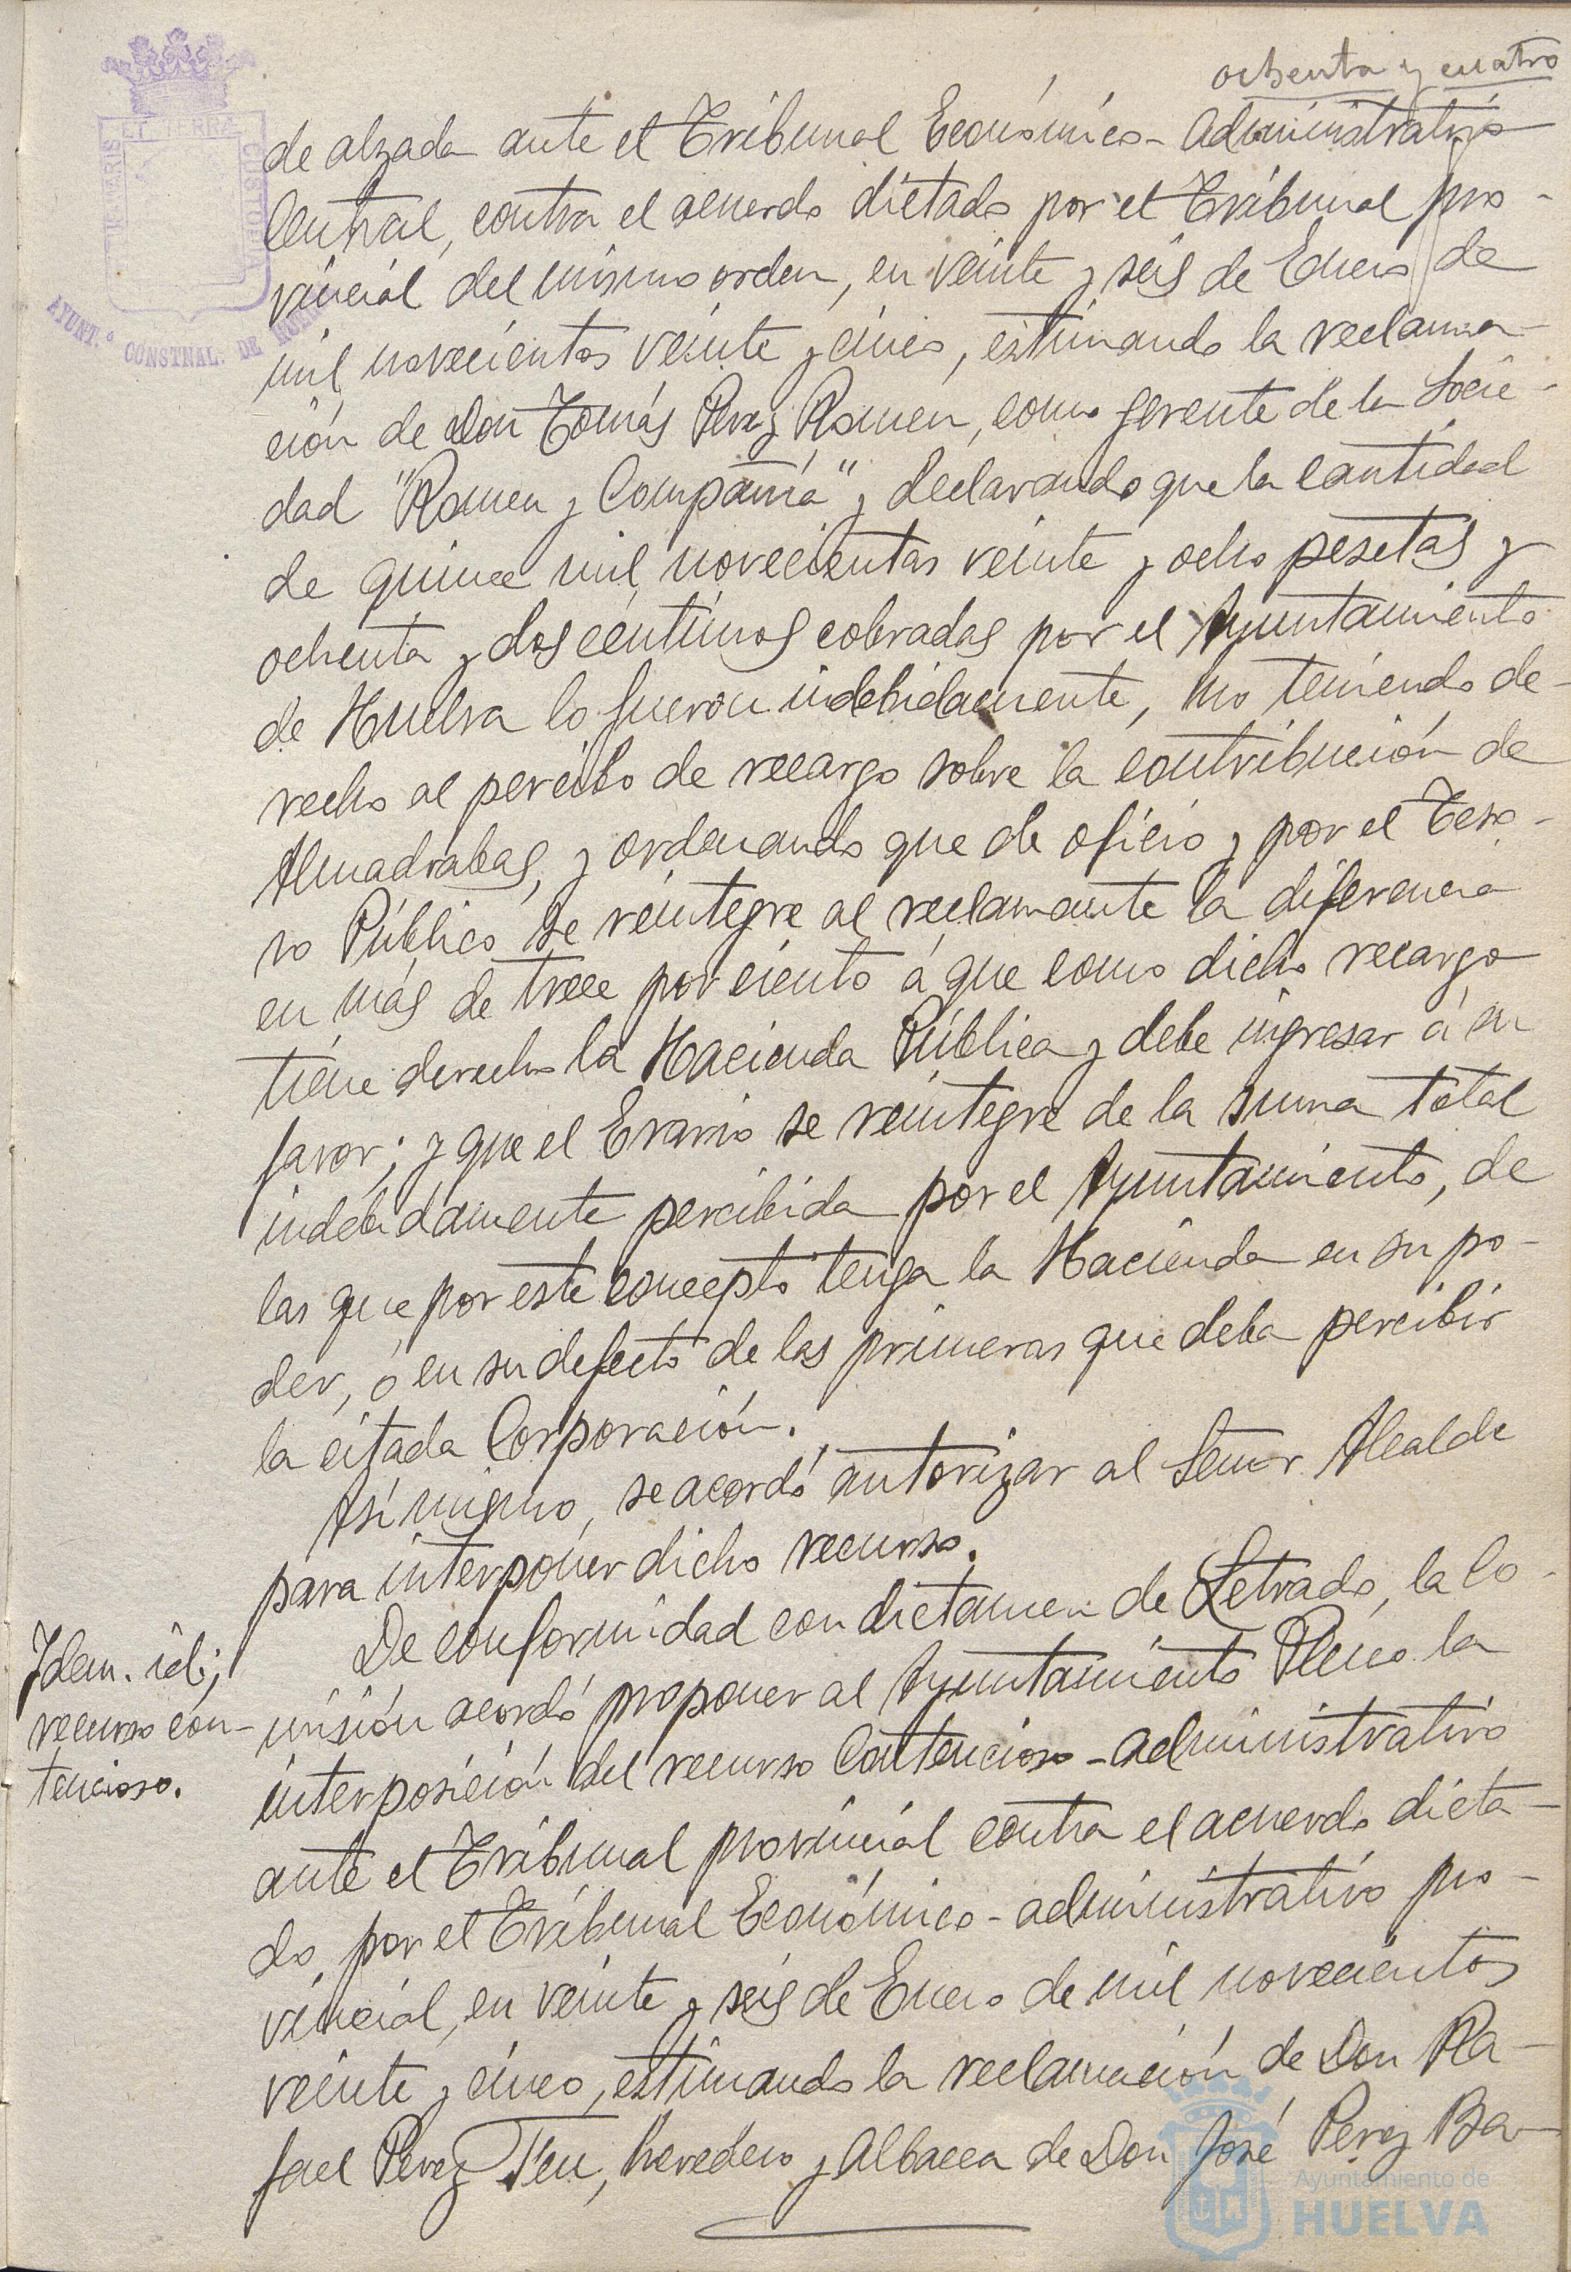 ochenta y cuatro
de alzada ante el Tribunal Económico-Administrativo
Central, contra el acuerdo dictado por el Tribunal pro-
vincial del mismo orden, en veinte y seis de Enero de
mil novecientos veinte y cinco, estimando la reclama-
ción de Don Tomás Perez Romeu, como gerente de la Socie-
dad "Romeu y Compañía" y declarando que la cantidad
de quince mil novecientas veinte y ocho pesetas y
ochenta y dos céntimos cobradas por el Ayuntamiento
de Huelva lo fueron indebidamente, no teniendo de-
recho al percibo de recargo sobre la contribución de
Almadrabas, y ordenando que de oficio y por el Teso-
ro Público se reintegre al reclamante la diferencia
en más de trece por ciento á que como dicho recargo
tiene derecho la Hacienda Pública y debe ingresar á su
favor; y que el Erario se reintegre de la suma total
indebidamente percibida por el Ayuntamiento, de
las que por este concepto tenga la Hacienda en su po-
der, ó en su defecto de las primeras que deba percibir
la citada Corporación.
Asi mismo, se acordó autorizar al Señor Alcalde
para interponer dicho recurso.
Idem. id;
recurso con-
tencioso.
De conformidad con dictamen de Letrado, la Co-
misión acordó proponer al Ayuntamiento Pleno la
interposición del recurso Contencioso-administrativo
ante el Tribunal provincial contra el acuerdo dicta-
do, por el Tribunal Económico-administrativo pro-
vincial, en veinte y seis de Enero de mil novecientos
veinte y cinco, estimando la reclamación de Don Ra-
fael Perez Feu, heredero y Albacea de Don José Perez Bar-
ET TERRÆ CUSTODIA
AYUNT.º CONSTNAL. DE
Ayuntamiento de
HUELVA